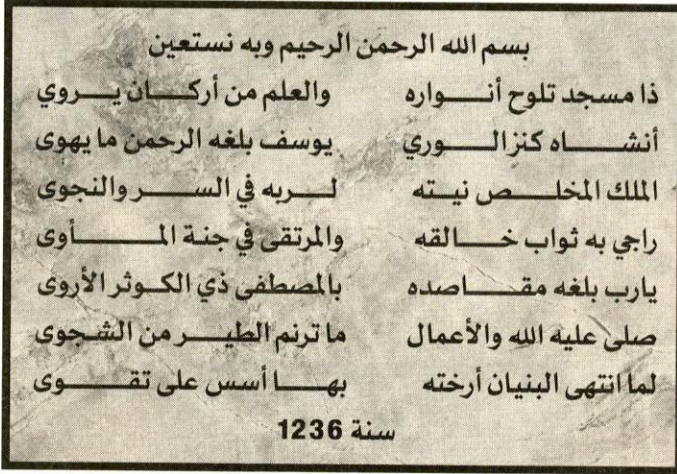 بسم الله الرحمن الرحيم وبه نستعين
ذا مسجد تلوح أنـــواره والعلم من أركـــان يــروي
أنشـــــاه كنز الـــوري يوسف بلغه الرحمن ما يهوى
الملك المخلـــص نيـته لـــربه في الســـر والنجوى
راجي به ثواب خـــالقه والمرتقى في جنة المـــــأوى
يارب بلغه مقـــــاصده بالمصطفى ذي الكــوثر الأروى
صلى عليه الله والأعمال ما ترنم الطيـــر من الشجوى
لما انتهى البنيان أرخته بهـــــا أسس على تقـــــوى
سنة 1236